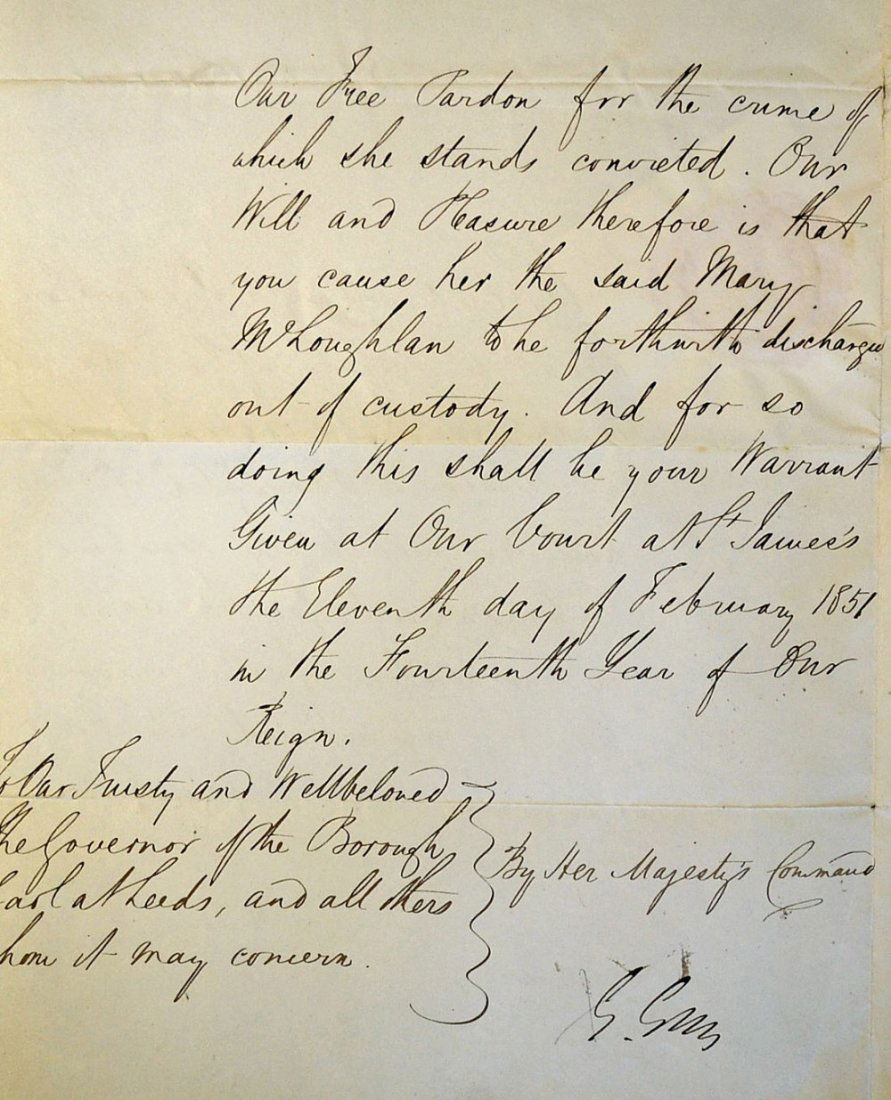 Our Free Pardon for the crime of
which she stands convicted. Our
Will and Pleasure therefore is that
you cause her the said Mary
McLoughlan to be forthwith discharged
out of custody. And for so
doing this shall be your Warrant
Given at Our Court at St James's
the Eleventh day of February 1851
in the Fourteenth Year of Our
Reign.
To Our Trusty and Wellbeloved
the Governor of the Borough
Gaol at Leeds, and all others
whom it may concern.
By Her Majesty's Command
G. Grey